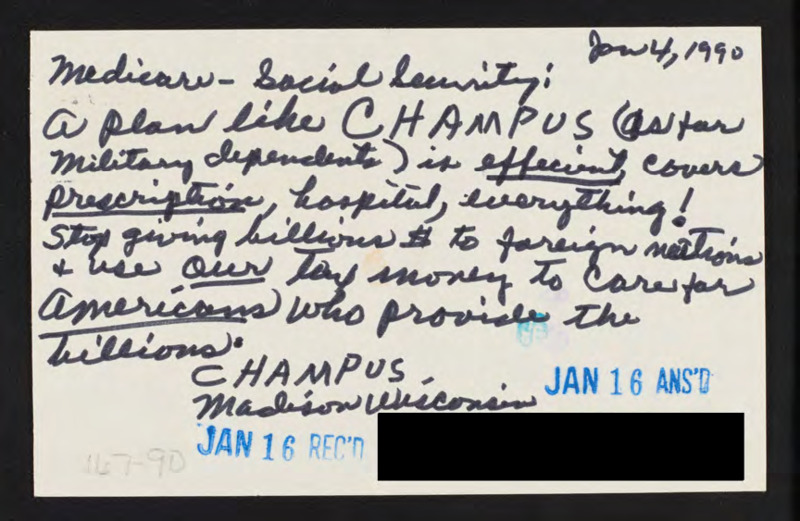 Jan 4, 1990
Medicare - Social Security:
A plan like CHAMPUS (as for
military dependents) is effecient, covers
prescription, hospital, everything!
Stop giving billions $ to foreign nations
+ use our tax money to care for
Americans who provide the
billions.
CHAMPUS
Madison Wisconsin
JAN 16 ANS'D
JAN 16 REC'D
167-90